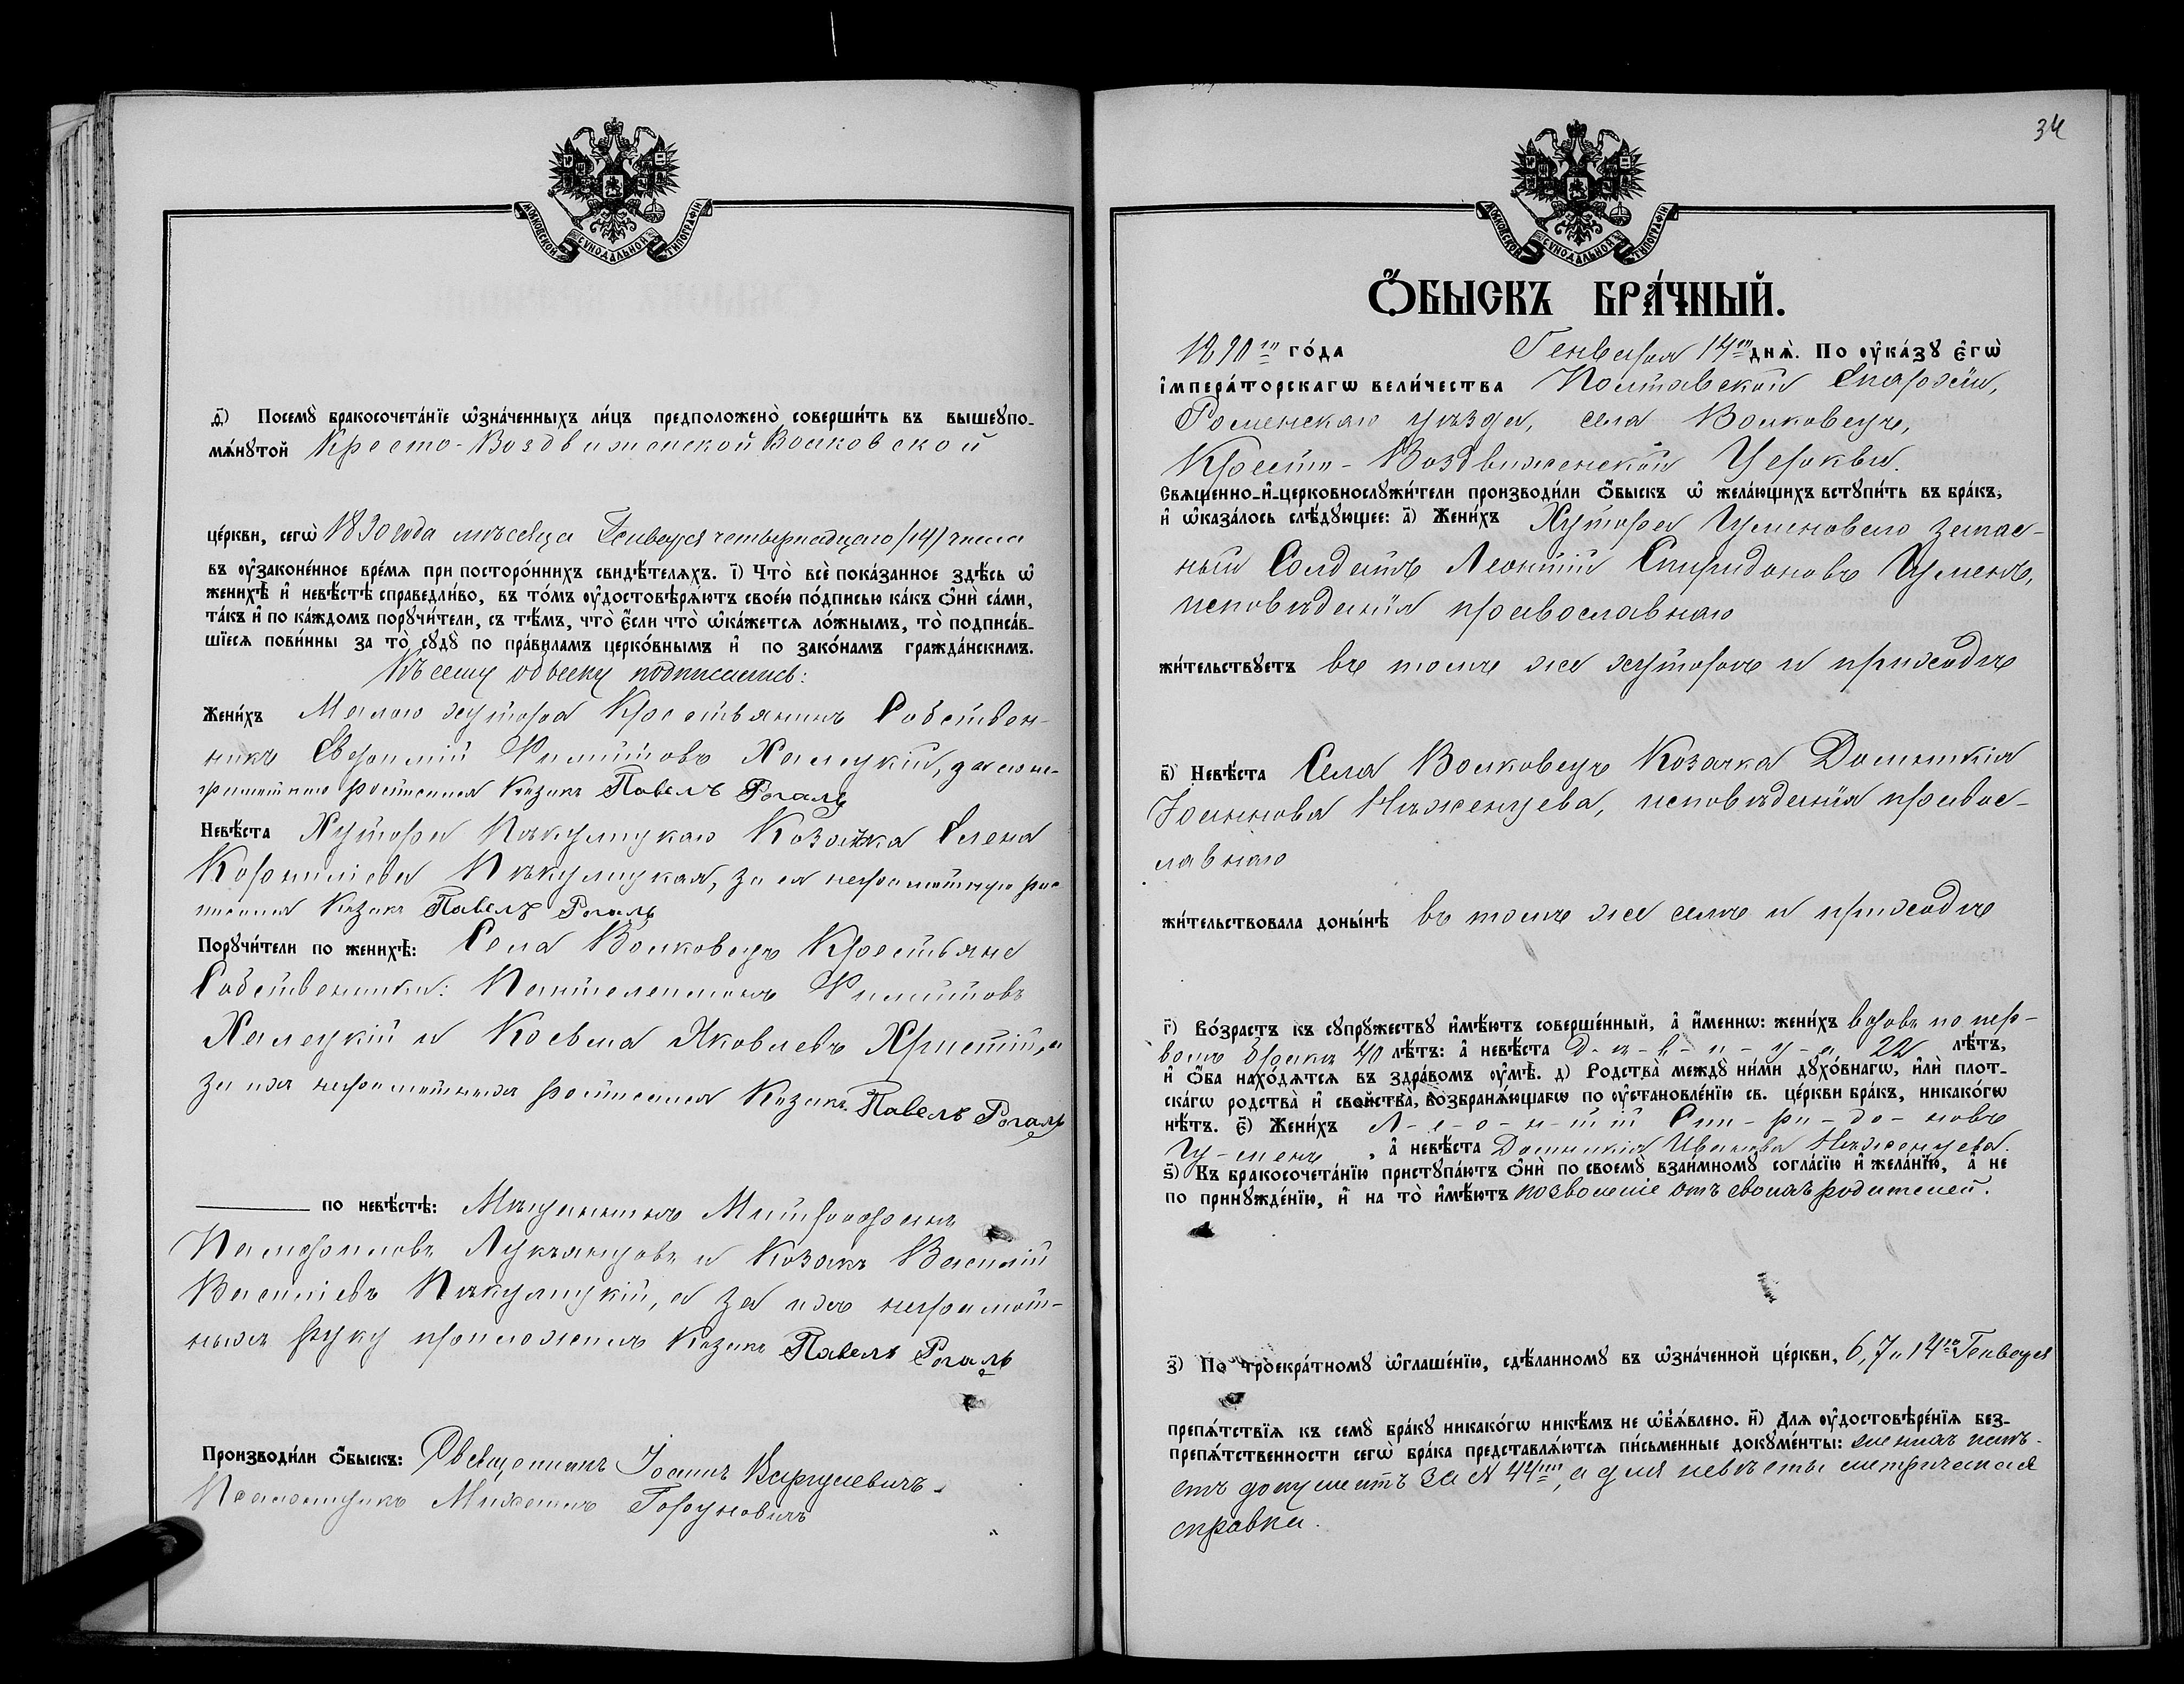 МОСКОВСКОЙ СѴНОДАЛЬНОЙ ТИПОГРАФІИ
д҃) Посемꙋ̀ бракосочета́нїе ѡ҆зна́ченныхъ ли́цъ предположено̀ соверши́ть въ вышеꙋпо-
мѧ́нꙋтой Кресто-Воздвиженской Волковской
це́ркви, сегѡ̀ 1890 года мѣсяца Генваря четырнадцаго /14/ числа
въ ᲂу҆законе́нное вре́мѧ при посторо́ннихъ свидѣ́телѧхъ. і҃) Что̀ всѐ пока́занное здѣ́сь ѡ҆
женихѣ̀ и҆ невѣ́стѣ справедли́во, въ то́мъ ᲂу҆достовѣрѧ́ютъ свое́ю по́дписью ка́къ ѻ҆нѝ са́ми,
та́къ и҆ по ка́ждомъ порꙋчи́тели, съ тѣ́мъ, что̀ є҆́сли что̀ ѡ҆ка́жетсѧ ло́жнымъ, то̀ подписа́в-
шїесѧ пови́нны за то̀ сꙋдꙋ̀ по пра́виламъ церко́внымъ и҆ по зако́намъ гражда́нскимъ.
Къ сему обыску подписались:
Жени́хъ Малого хутора Крестьянинъ Собствен-
никъ Евфимій Филиповъ Халецкій, за его не-
грамотного росписался Козакъ Павелъ Рогаль
Невѣ́ста Хутора Пѣкулицкаго Козачка Елена
Корниліева Пѣкулицкая, за ея неграмотную рос-
писался Козакъ Павелъ Рогаль
Порꙋчи́тели по женихѣ̀: Села Волковецъ Крестьяне
Собственники: Пантелеимонъ Филиповъ
Халецкій и Косьма Яковлевъ Христій, а
за ихъ неграмотныхъ росписался Козакъ Павелъ Рогаль
по невѣ́стѣ: Мѣщанинъ Митрофанъ
Памфиловъ Лукъянцовъ и Козакъ Василій
Василіевъ Пѣкулицкій, а за ихъ неграмот-
ныхъ руку приложилъ Козакъ Павелъ Рогаль
Производи́ли ѻ҆́быскъ: Священникъ Іоаннъ
Псаломщикъ Михаилъ
34
МОСКОВСКОЙ СѴНОДАЛЬНОЙ ТИПОГРАФІИ
Ѻ҆́БЫСКЪ БРА́ЧНЫЙ.
1890го го́да Генваря 14го днѧ̀. По ᲂу҆ка́зꙋ є҆гѡ̀
і҆мпера́торскагѡ вели́чества Полтавской Епархіи,
Роменскаго уѣзда, села Волковецъ,
Кресто-Воздвиженской Церкви.
Свѧщенно-и҆-церковнослꙋжи́тели производи́ли ѻ҆́быскъ ѡ҆ жела́ющихъ встꙋпи́ть въ бра́къ,
и҆ ѡ҆каза́лось слѣ́дꙋющее: а҃) Жени́хъ Хутора Цуменоваго запас-
ный Солдатъ Леонтій Спиридоновъ Цуменъ,
исповѣданія православнаго
жи́тельствꙋетъ въ томъ же хуторѣ и приходѣ
в҃) Невѣ́ста Села Волковецъ Козачка Домникія
Іоаннова Нѣженцева, исповѣданія правос-
лавнаго
жи́тельствовала доны́нѣ въ томъ же селѣ и приходѣ
г҃) Во́зрастъ къ сꙋпрꙋ́жествꙋ и҆мѣ́ютъ соверше́нный, а҆ и҆́меннѡ: жени́хъ вдовъ по пер-
вомъ бракѣ 40 лѣ́тъ: а҆ невѣ́ста д-ѣ-в-и-ц-а 22 лѣ́тъ,
и҆ ѻ҆́ба нахо́дѧтсѧ въ здра́вомъ ᲂу҆мѣ̀. д) Родства̀ междꙋ̀ ни́ми дꙋхо́внагѡ, и҆лѝ плот-
ска́гѡ родства̀ и҆ сво́йства̀, возбранѧ́ющагѡ по ᲂу҆становле́нїю св. це́ркви бра́къ, никако́гѡ
нѣ́тъ. є҃) Жени́хъ Л-е-о-н-тій Спи-ри-до-новъ
Цу-менъ, а҆ невѣ́ста Домникія Иванова Нѣженцева.
ѕ҃) Къ бракосочета́нїю пристꙋпа́ютъ ѻ҆нѝ по своемꙋ̀ взаи́мномꙋ согла́сїю и҆ жела́нїю, а҆ не
по принꙋжде́нїю, и҆ на то̀ и҆мѣ́ютъ позволеніе отъ своихъ родителей.
з҃) По троекра́тномꙋ ѡ҆глаше́нїю, сдѣ́ланномꙋ въ ѡ҆зна́ченной це́ркви, 6, 7 и 14го Генваря
препѧ́тствїѧ къ семꙋ̀ бра́кꙋ никако́гѡ никѣ́мъ не ѡ҆б̾ѧ́влено. и҃) Для ᲂу҆достовѣре́нїѧ без-
препѧ́тственности сегѡ̀ бра́ка представлѧ́ютсѧ пи́сьменные докꙋме́нты: женихъ имѣ-
етъ документъ за № 44мъ, а для невѣсты метрическая
справка.